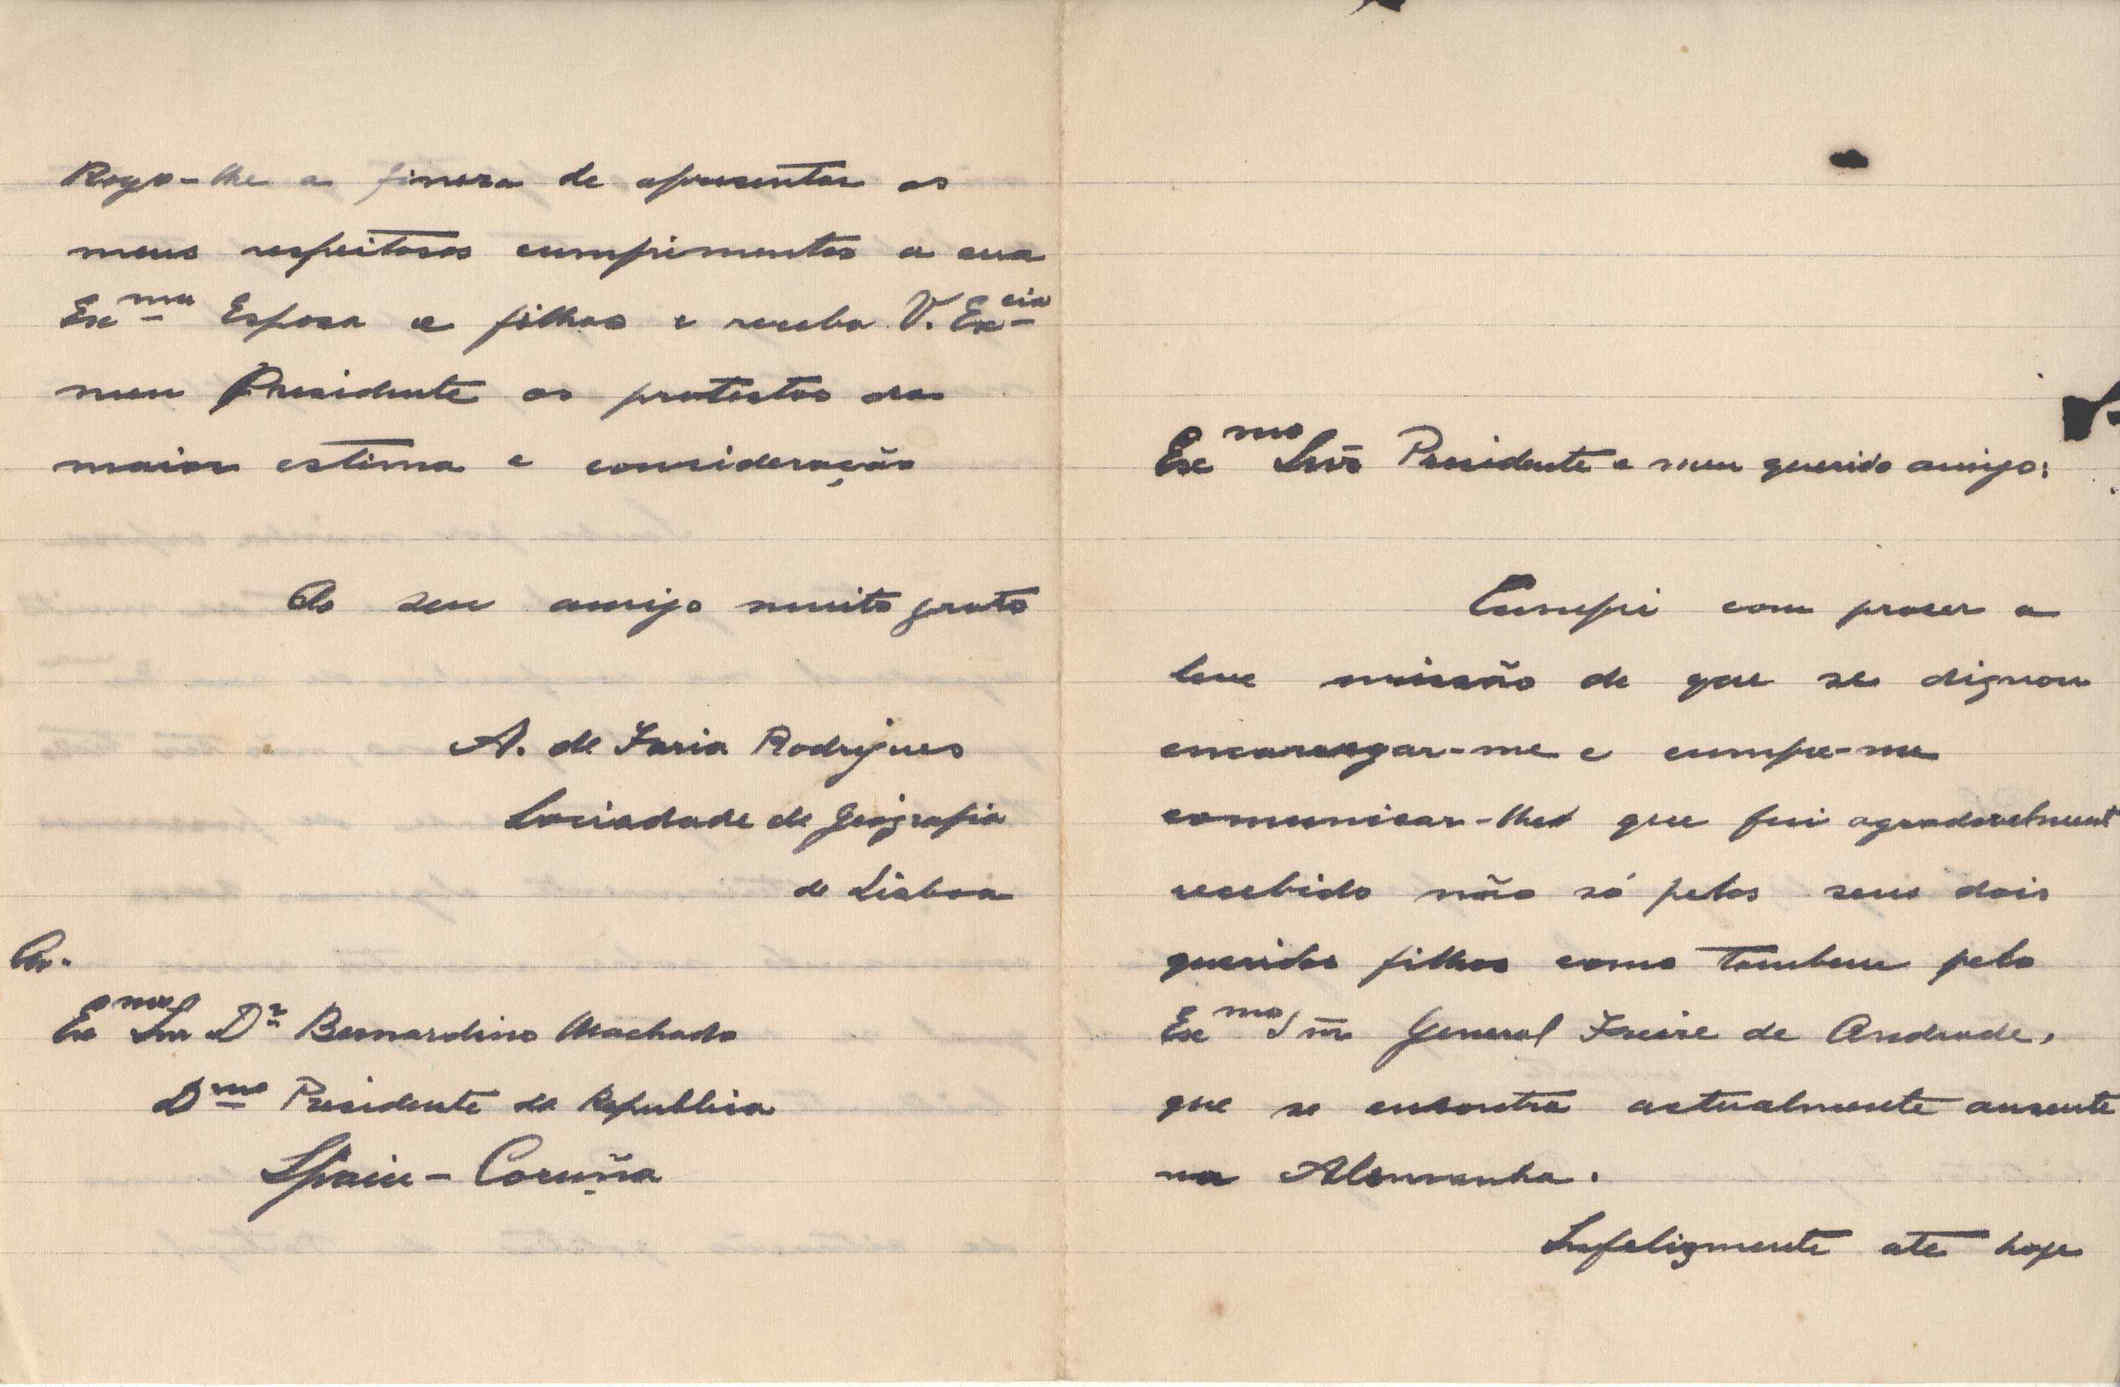 Rogo-lhe a fineza de apresentar os
meus respeitosos cumprimentos a sua
Exma Esposa e filhos e receba V. Excia
meu Presidente os protestos da
maior estima e consideração
Do seu amigo muito grato
A. de Faria Rodrigues
Sociadade de Geografia
de Lisboa
Ao.
Exmo Snr Dr Bernardino Machado
Dmo Presidente da Republica
Spain - Coruña
Exmo Snr Presidente e meu querido amigo:
Cumpri com prazer a
leve missão de que se dignou
encarregar-me e cumpre-me
comunicar-lhe que fui agradavelment
recebido não só pelos seus dois
queridos filhos como tambem pelo
Exmo Snr General Freire de Andrade,
que se encontra actualmente ausente
na Alemanha.
Infelizmente até hoje